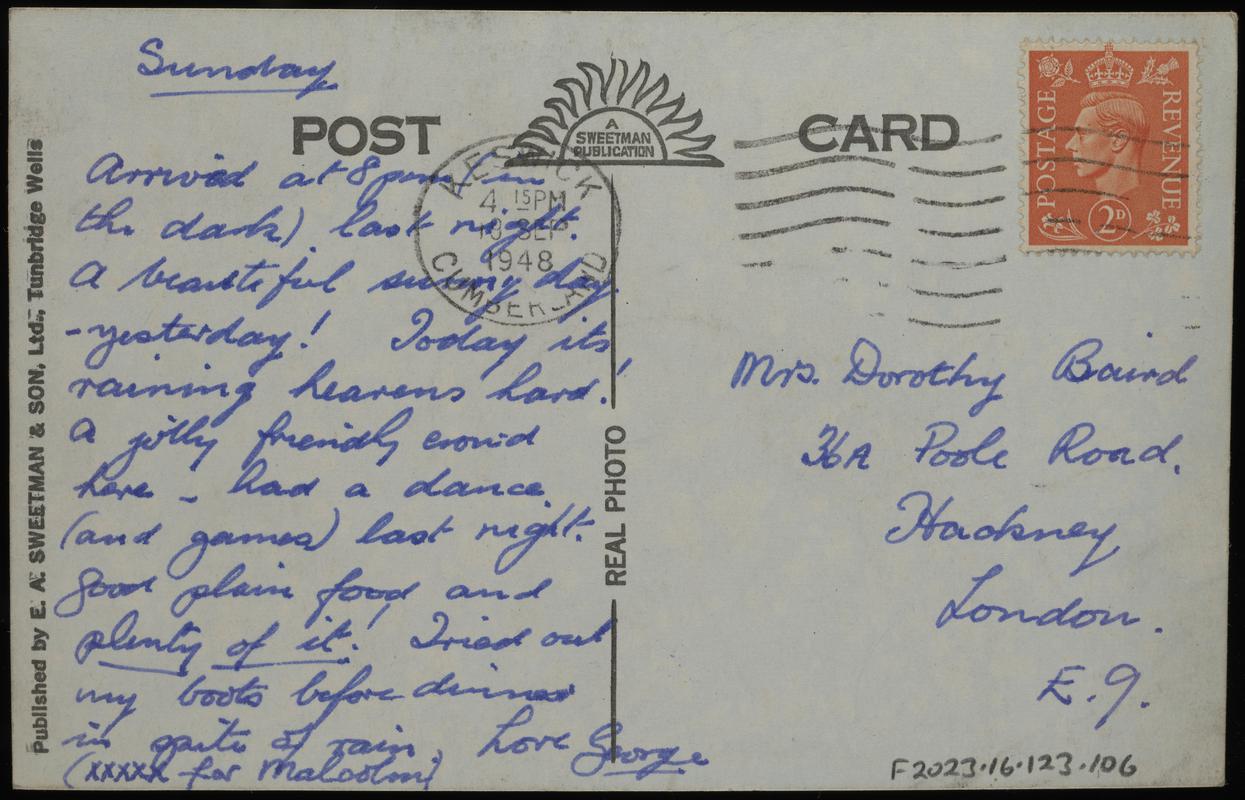 Sunday
POST CARD
A
SWEETMAN
PUBLICATION
POSTAGE REVENUE
2D
KESWICK
4 15PM
13 SEP
1948
CUMBERLAND
Arrived at 8pm (in
the dark) last night.
A beautiful sunny day
- yesterday! Today its
raining heavens hard!
A jolly friendly crowd
here - had a dance
(and games) last night.
Good plain food and
plenty of it! Tried out
my boots before dinner
in spite of rain, Love George
(xxxxx for Malcolm)
Mrs. Dorothy Baird
36A Poole Road.
Hackney
London.
E.9.
REAL PHOTO
Published by E. A. SWEETMAN & SON, Ltd., Tunbridge Wells
F2023.16.123.106